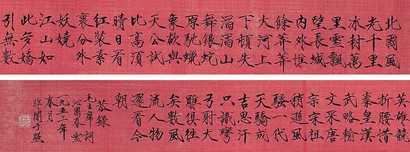 北國風
光千里
冰封萬
里雪飄
望長城
内外惟
餘莽莽
大河上
下頓失
滔滔山
舞銀蛇
原馳蠟
象欲與
天公試
比高須
晴日看
紅裝素
裹分外
妖嬈
江山如
此多嬌
引無數
英雄競
折腰惜
秦皇漢
武略輸
文采唐
宗宋祖
稍遜風
騷一代
天驕成
吉思汗
只識彎
弓射大
雕俱往
矣數風
流人物
還看今
朝
恭錄
毛主席詞
沁園春雪
一九五二年
春月
非闇于照